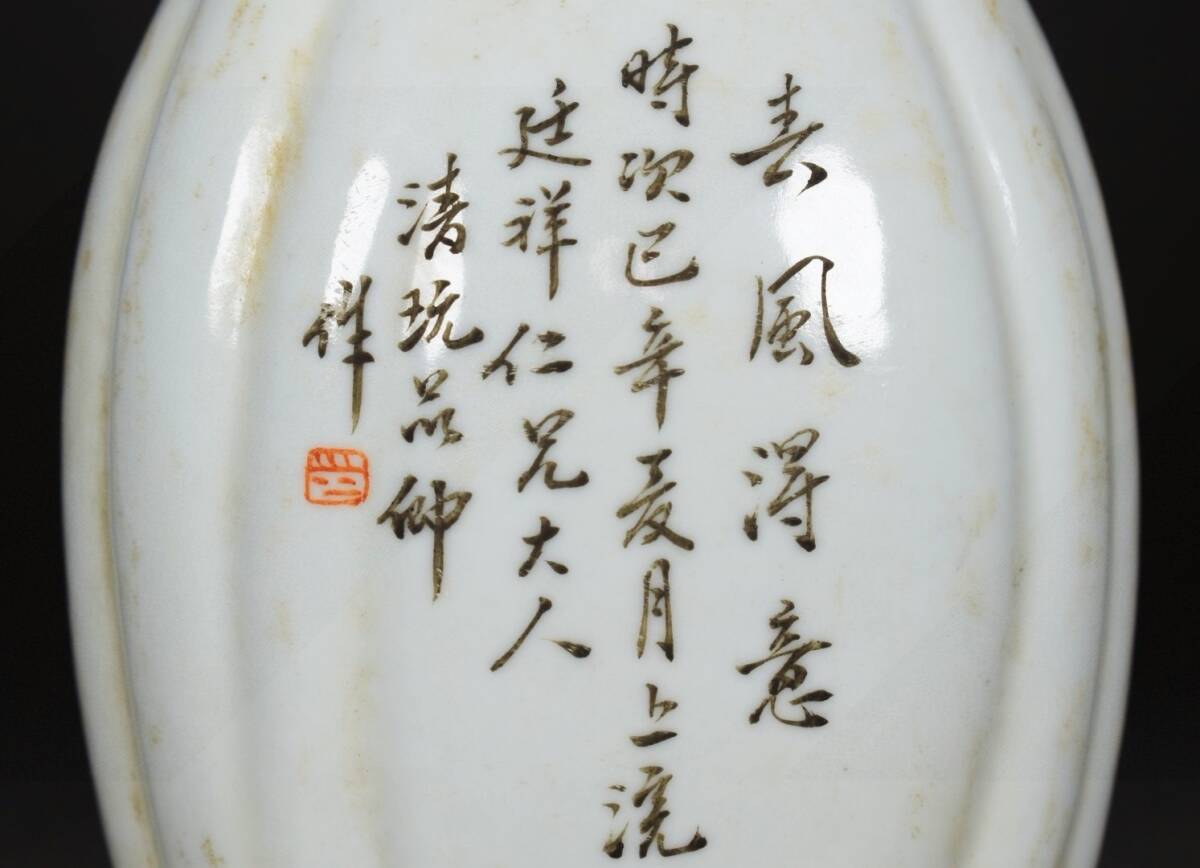 春風得意
時次己辛夏月上浣
廷祥仁兄大人
清玩品卿
作